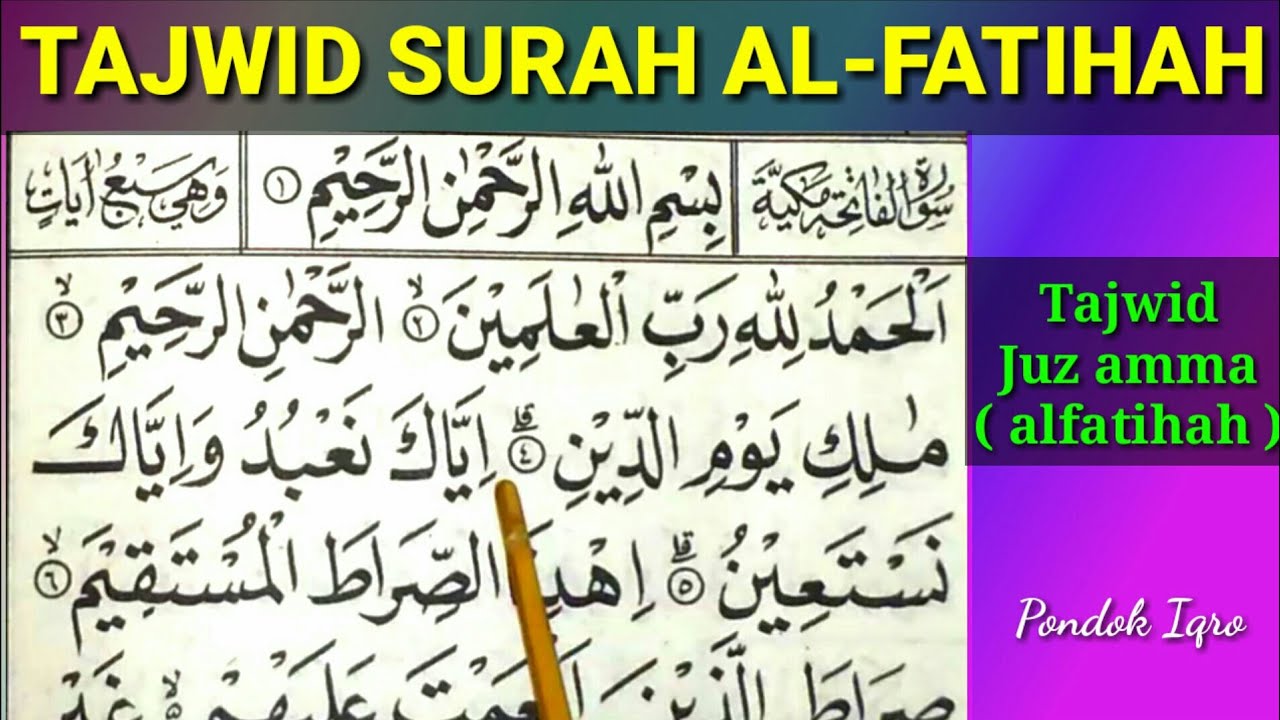 TAJWID SURAH AL-FATIHAH
سُوْرَةُ الْفَاتِحَةِ مَكِّيَّةٌ
بِسْمِ اللّٰهِ الرَّحْمٰنِ الرَّحِيْمِ ١
وَهِيَ سَبْعُ اٰيَاتٍ
اَلْحَمْدُ لِلّٰهِ رَبِّ الْعٰلَمِيْنَ ۙ ٢ الرَّحْمٰنِ الرَّحِيْمِ ۙ ٣
مٰلِكِ يَوْمِ الدِّيْنِ ۗ ٤ اِيَّاكَ نَعْبُدُ وَاِيَّاكَ
نَسْتَعِيْنُ ۗ ٥ اِهْدِنَا الصِّرَاطَ الْمُسْتَقِيْمَ ۙ ٦
صِرَاطَ الَّذِيْنَ اَنْعَمْتَ عَلَيْهِمْ ۙ غَيْرِ
Tajwid
Juz amma
( alfatihah )
Pondok Iqro